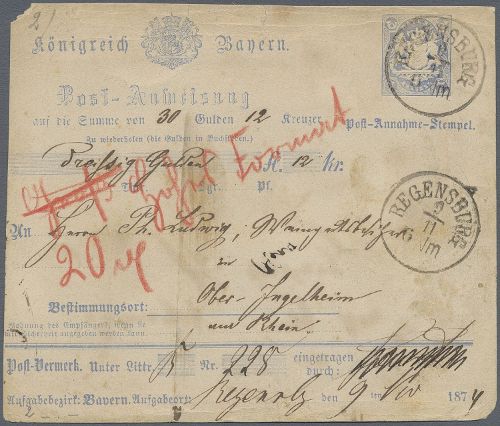 2
Königreich Bayern.
Post-Anweisung
auf die Summe von 30 Gulden 12 Kreuzer
Post-Annahme-Stempel.
Zu wiederholen (die Gulden in Buchstaben.)
Dreißig Gulden fl. 12 kr.
Th. Sgr. Pf.
REGENSBURG
9
11
Vm
REGENSBURG
9
11
6 Vm
An Herrn Ph. Ludwig,
zu
20
Bestimmungsort: Ober-Ingelheim
am Rhein
Wohnung des Empfängers, wenn sie
angegeben werden kann.
Post-Vermerk. Unter Littr. Nr. 228 eingetragen
durch:
Aufgabebezirk: Bayern. Aufgabeort: den 9 ten Nov 1874
2